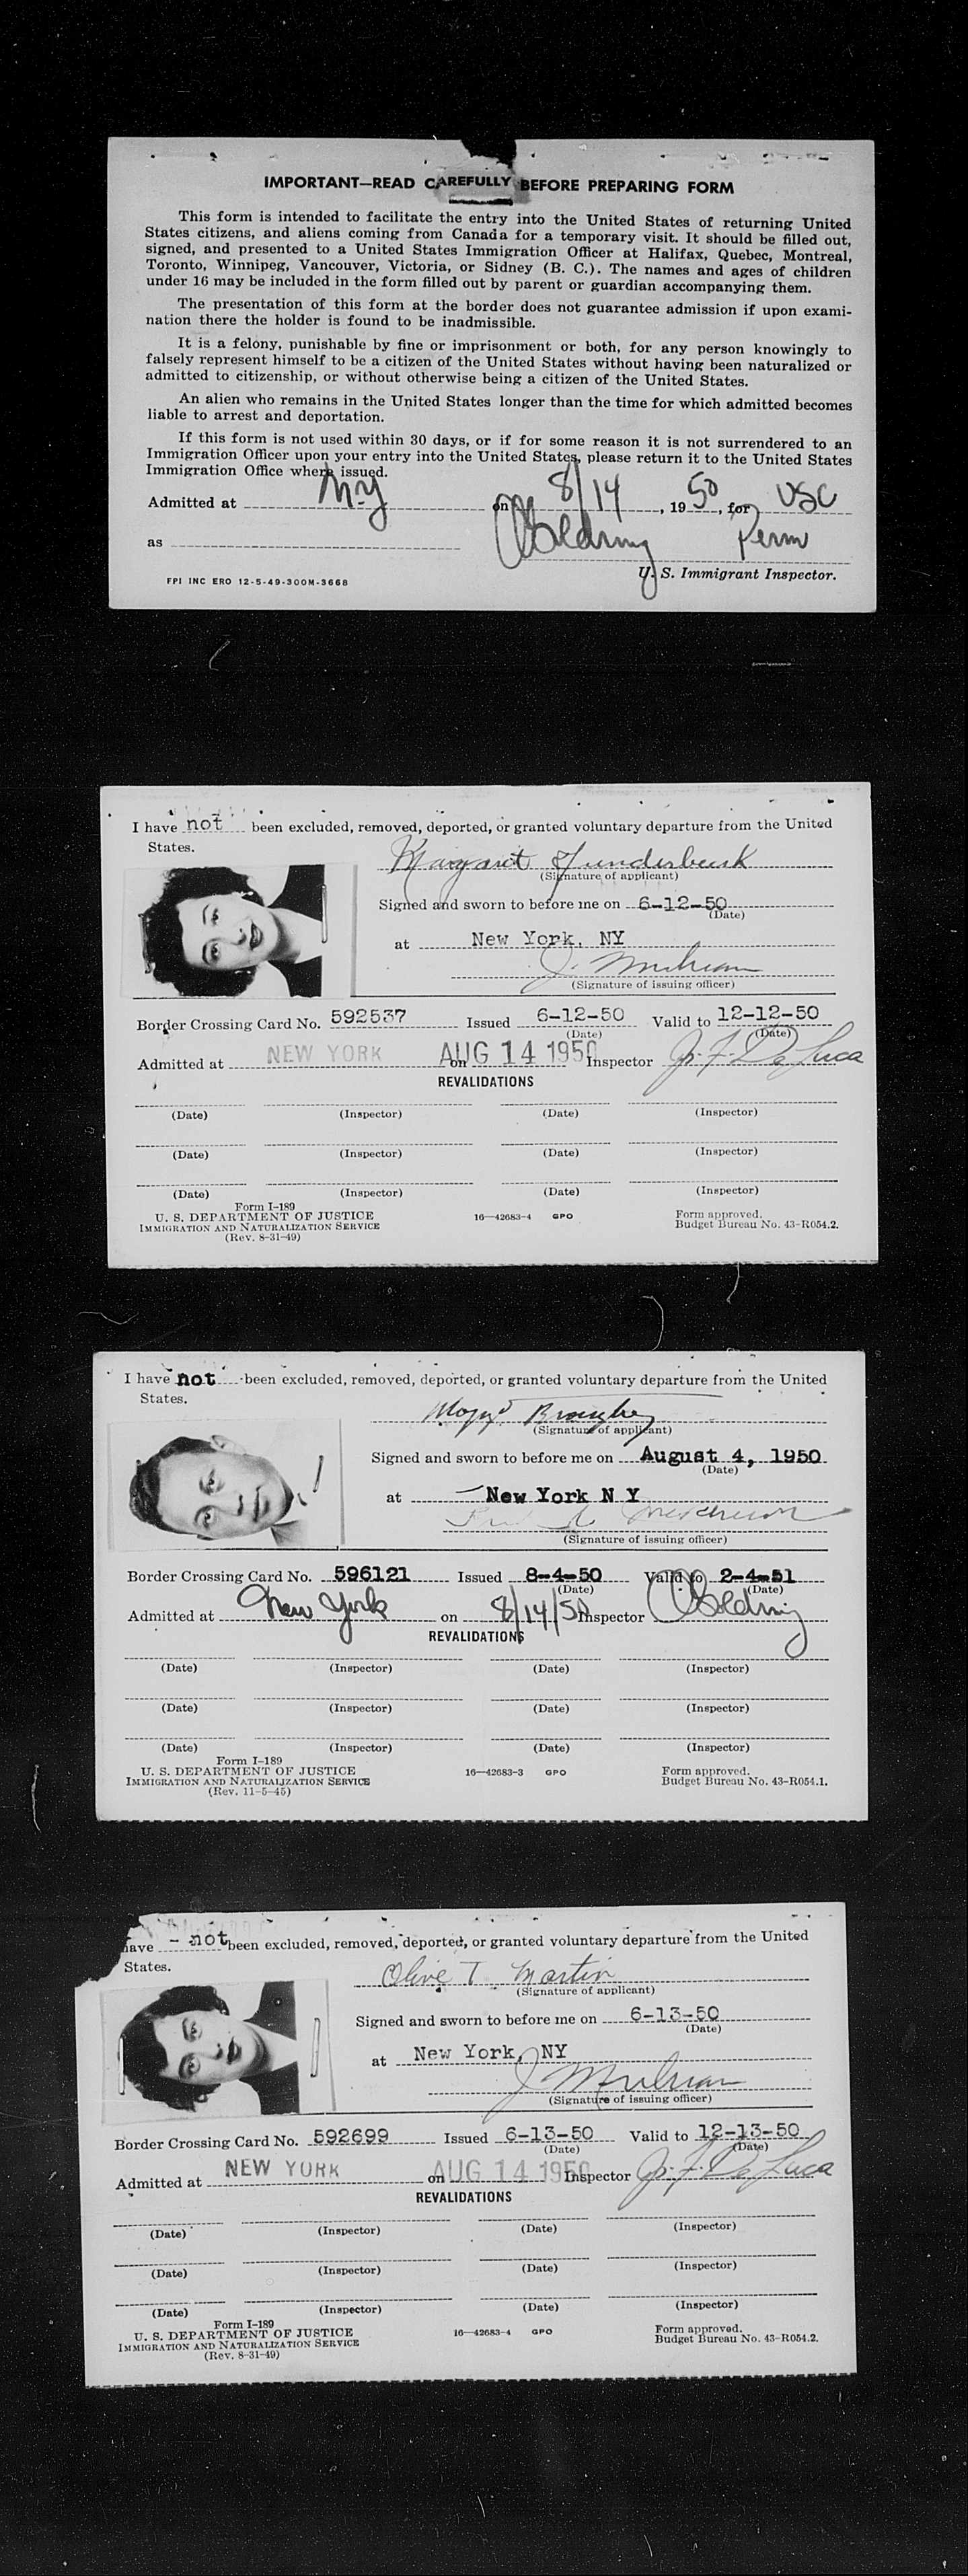 IMPORTANT—READ CAREFULLY BEFORE PREPARING FORM
This form is intended to facilitate the entry into the United States of returning United
States citizens, and aliens coming from Canada for a temporary visit. It should be filled out,
signed, and presented to a United States Immigration Officer at Halifax, Quebec, Montreal,
Toronto, Winnipeg, Vancouver, Victoria, or Sidney (B. C.). The names and ages of children
under 16 may be included in the form filled out by parent or guardian accompanying them.
The presentation of this form at the border does not guarantee admission if upon exami-
nation there the holder is found to be inadmissible.
It is a felony, punishable by fine or imprisonment or both, for any person knowingly to
falsely represent himself to be a citizen of the United States without having been naturalized or
admitted to citizenship, or without otherwise being a citizen of the United States.
An alien who remains in the United States longer than the time for which admitted becomes
liable to arrest and deportation.
If this form is not used within 30 days, or if for some reason it is not surrendered to an
Immigration Officer upon your entry into the United States, please return it to the United States
Immigration Office where issued.
Admitted at NY on 8/14, 1950, for USC
as Perm
U. S. Immigrant Inspector.
FPI INC ERO 12-5-49-300M-3668
I have not been excluded, removed, deported, or granted voluntary departure from the United
States.
Margaret Funderburk
(Signature of applicant)
Signed and sworn to before me on 6-12-50
(Date)
at New York, NY
(Signature of issuing officer)
Border Crossing Card No. 592537 Issued 6-12-50 Valid to 12-12-50
(Date) (Date)
Admitted at NEW YORK on AUG 14 1950 Inspector J. F. De Luca
REVALIDATIONS
(Date) (Inspector) (Date) (Inspector)
(Date) (Inspector) (Date) (Inspector)
(Date) (Inspector) (Date) (Inspector)
Form I-189
U. S. DEPARTMENT OF JUSTICE 16—42683-4 GPO Form approved.
IMMIGRATION AND NATURALIZATION SERVICE Budget Bureau No. 43-R054.2.
(Rev. 8-31-49)
I have not been excluded, removed, deported, or granted voluntary departure from the United
States.
(Signature of applicant)
Signed and sworn to before me on August 4, 1950
(Date)
at New York N Y
(Signature of issuing officer)
Border Crossing Card No. 596121 Issued 8-4-50 Valid to 2-4-51
(Date) (Date)
Admitted at New York on 8/14/50 Inspector
REVALIDATIONS
(Date) (Inspector) (Date) (Inspector)
(Date) (Inspector) (Date) (Inspector)
(Date) (Inspector) (Date) (Inspector)
Form I-189
U. S. DEPARTMENT OF JUSTICE 16—42683-3 GPO Form approved.
IMMIGRATION AND NATURALIZATION SERVICE Budget Bureau No. 43-R054.1.
(Rev. 11-5-45)
have - not been excluded, removed, deported, or granted voluntary departure from the United
States.
Olive T. Martin
(Signature of applicant)
Signed and sworn to before me on 6-13-50
(Date)
at New York, NY
(Signature of issuing officer)
Border Crossing Card No. 592699 Issued 6-13-50 Valid to 12-13-50
(Date) (Date)
Admitted at NEW YORK on AUG 14 1950 Inspector J. F. De Luca
REVALIDATIONS
(Date) (Inspector) (Date) (Inspector)
(Date) (Inspector) (Date) (Inspector)
(Date) (Inspector) (Date) (Inspector)
Form I-189
U. S. DEPARTMENT OF JUSTICE 16—42683-4 GPO Form approved.
IMMIGRATION AND NATURALIZATION SERVICE Budget Bureau No. 43-R054.2.
(Rev. 8-31-49)